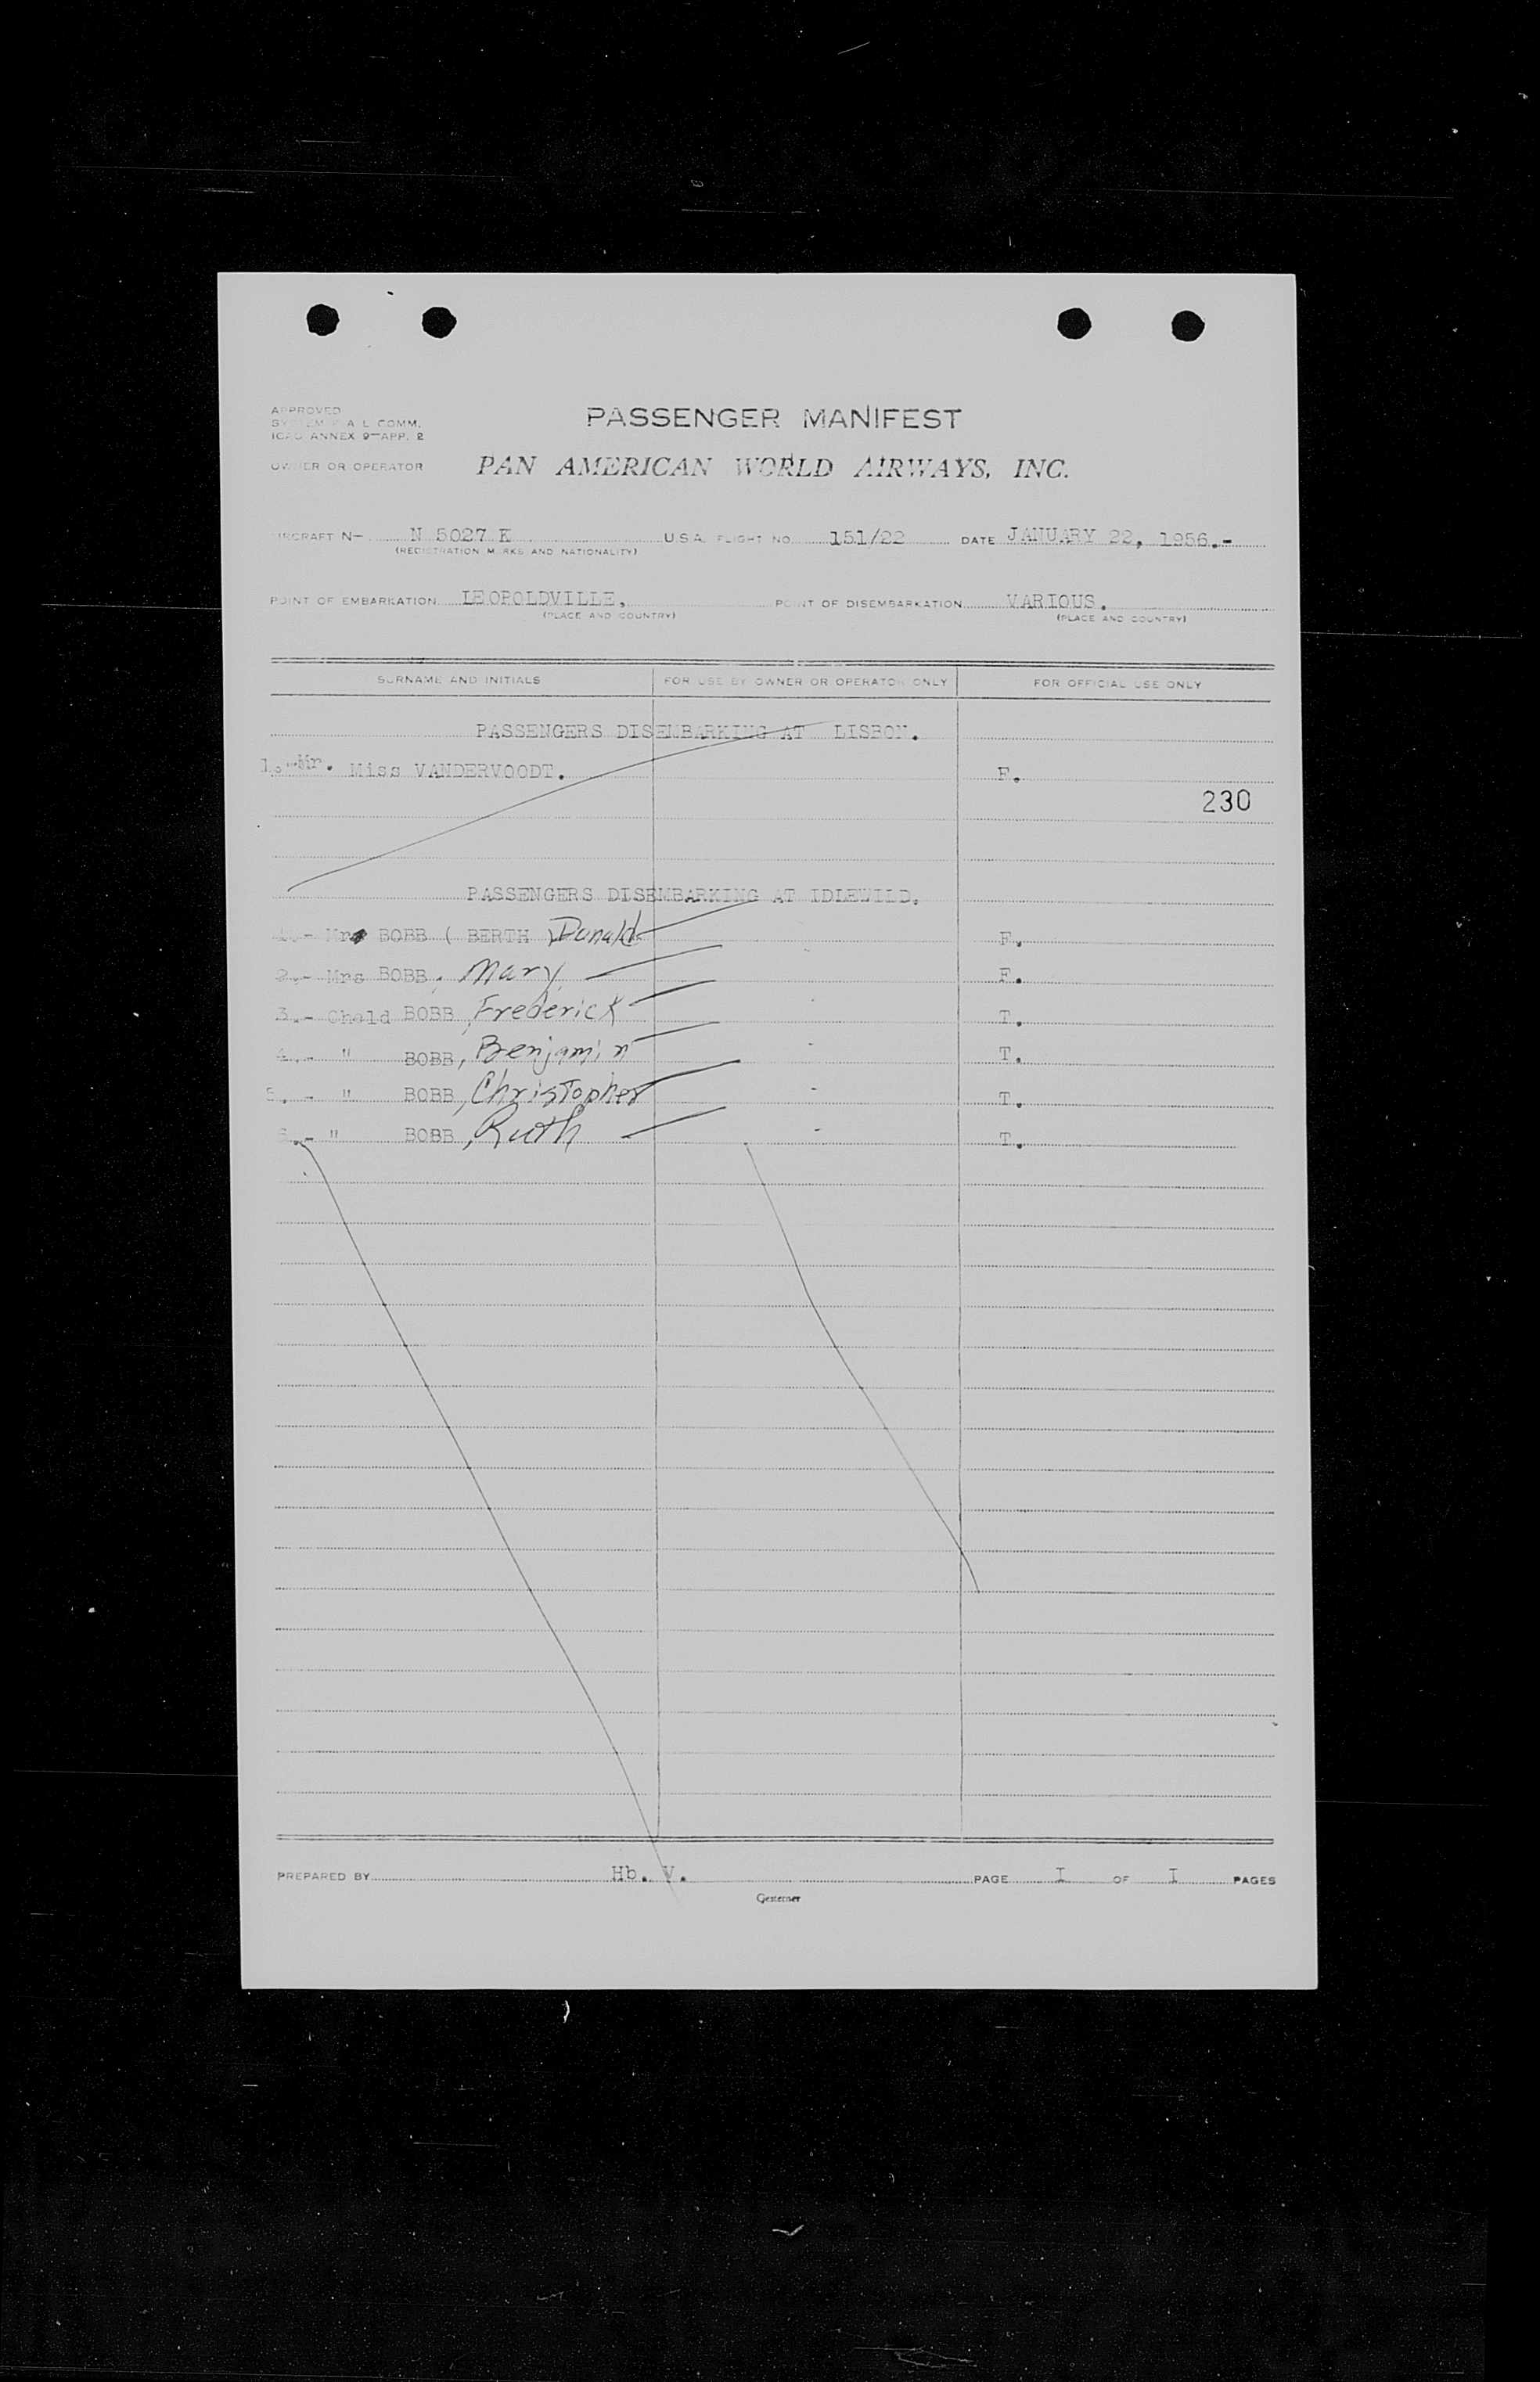 APPROVED
SYSTEM A L COMM.
ICAO ANNEX 9—APP. 2
PASSENGER MANIFEST
OWNER OR OPERATOR PAN AMERICAN WORLD AIRWAYS, INC.
AIRCRAFT N— N 5027 K U.S.A. FLIGHT NO. 151/22 DATE JANUARY 22, 1956.-
(REGISTRATION MARKS AND NATIONALITY)
POINT OF EMBARKATION LEOPOLDVILLE, POINT OF DISEMBARKATION VARIOUS.
(PLACE AND COUNTRY) (PLACE AND COUNTRY)
SURNAME AND INITIALS FOR USE BY OWNER OR OPERATOR ONLY FOR OFFICIAL USE ONLY
PASSENGERS DISEMBARKING AT LISBON.
1. Mr. Miss VANDERVOODT. F.
230
PASSENGERS DISEMBARKING AT IDLEWILD.
1.- Mr BOBB ( BERTH ) Donald F.
2.- Mrs BOBB, Mary F.
3.- Chald BOBB, Frederick - T.
4.- " BOBB, Benjamin - T.
5.- " BOBB, Christopher - T.
6.- " BOBB, Ruth - T.
PREPARED BY Hb. V. PAGE I OF I PAGES
Gestetner